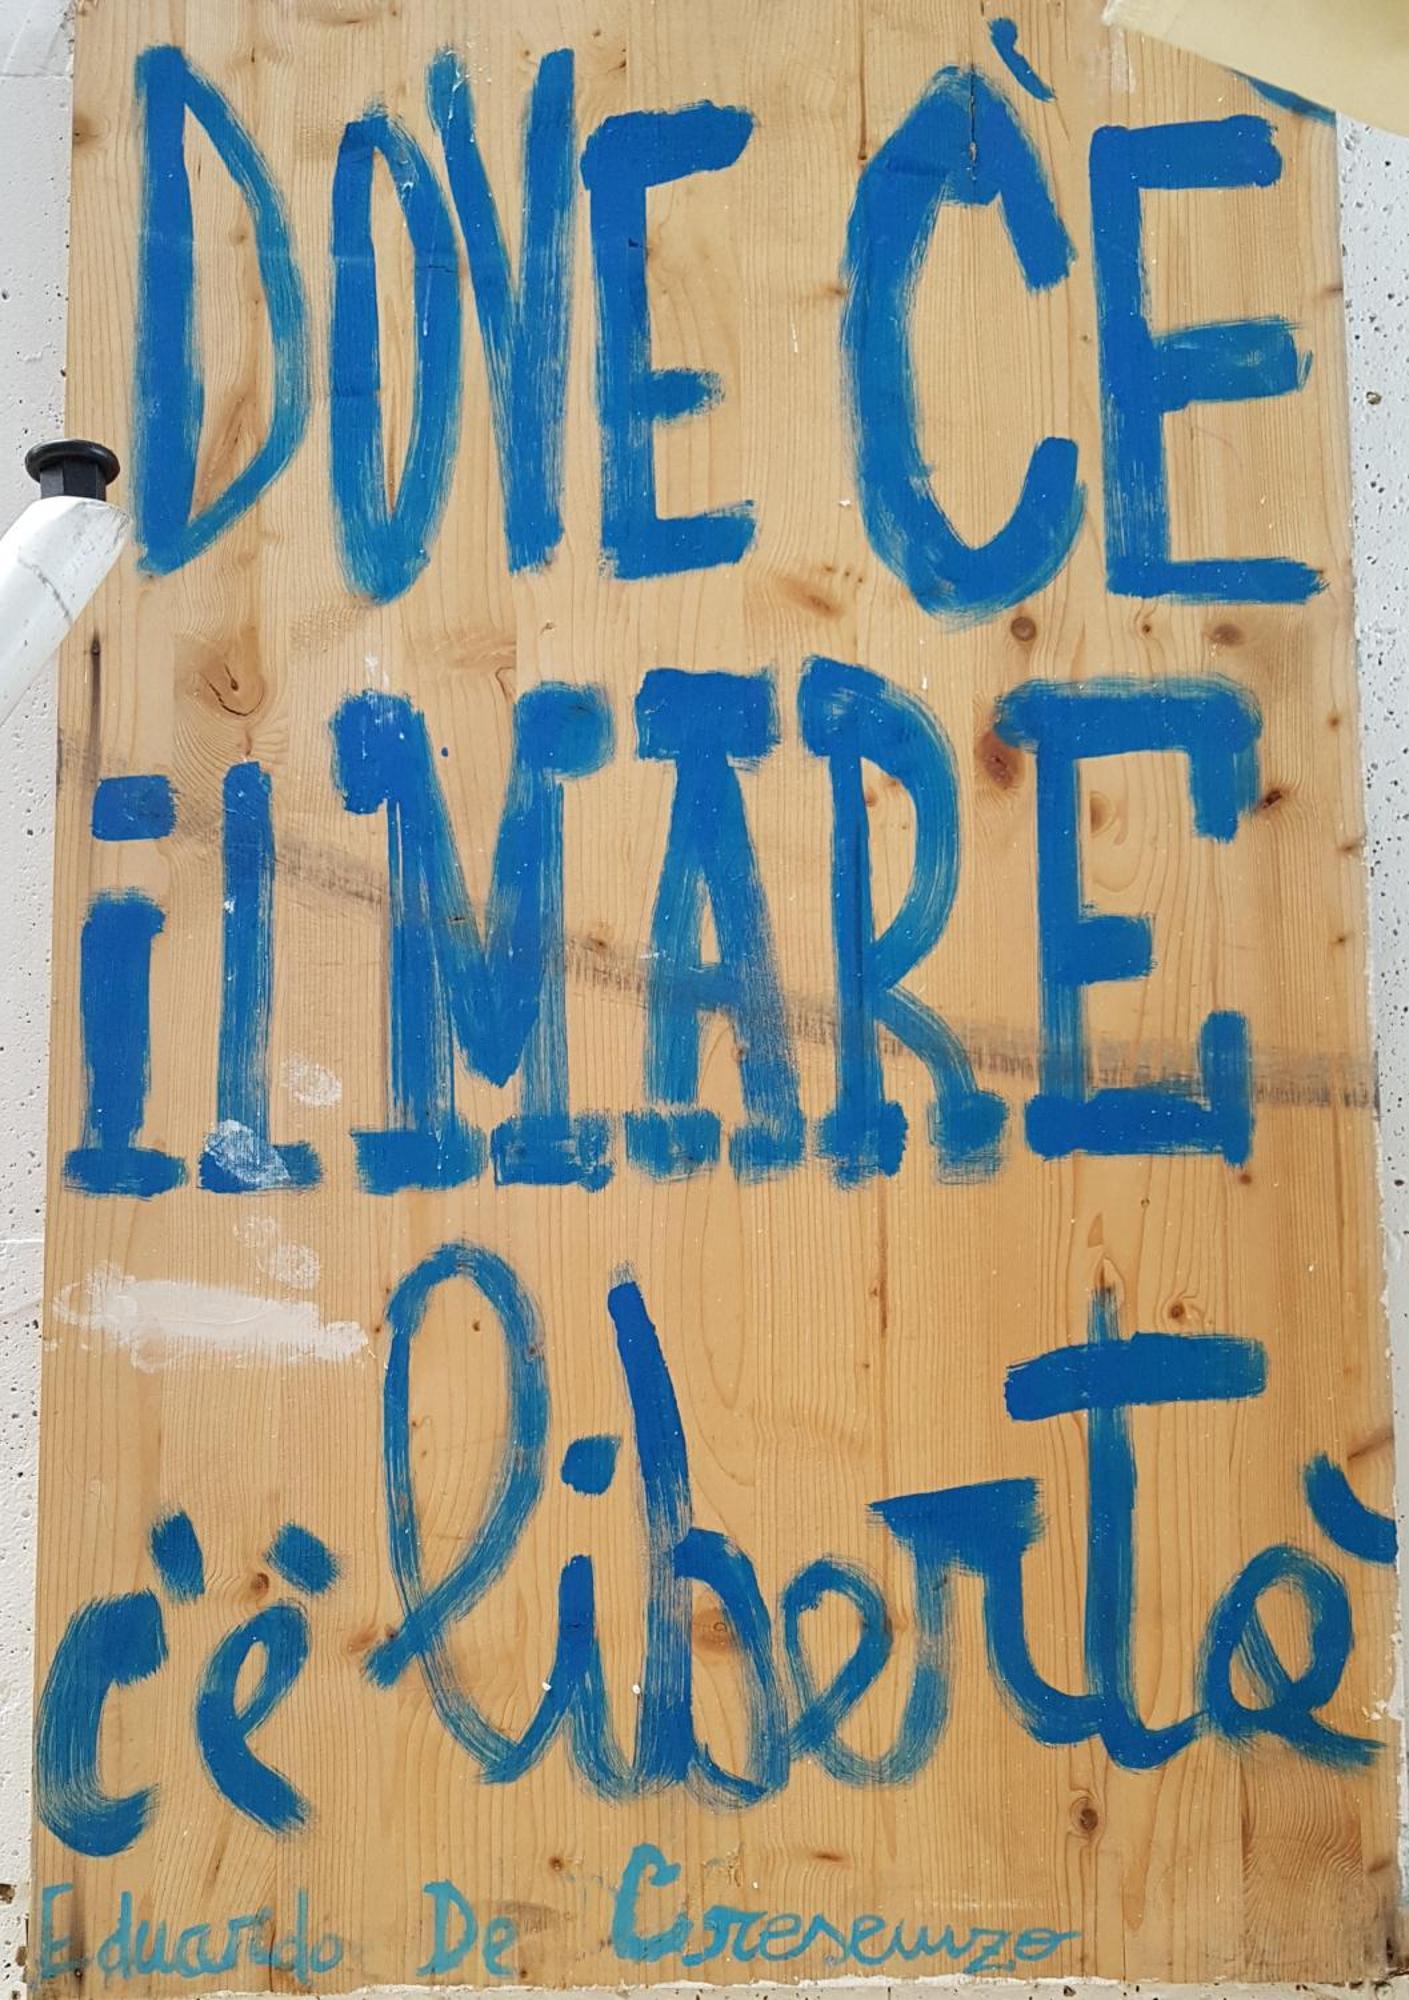 DOVE C'È
il MARE
c'è libertà
Eduardo De Crescenzo